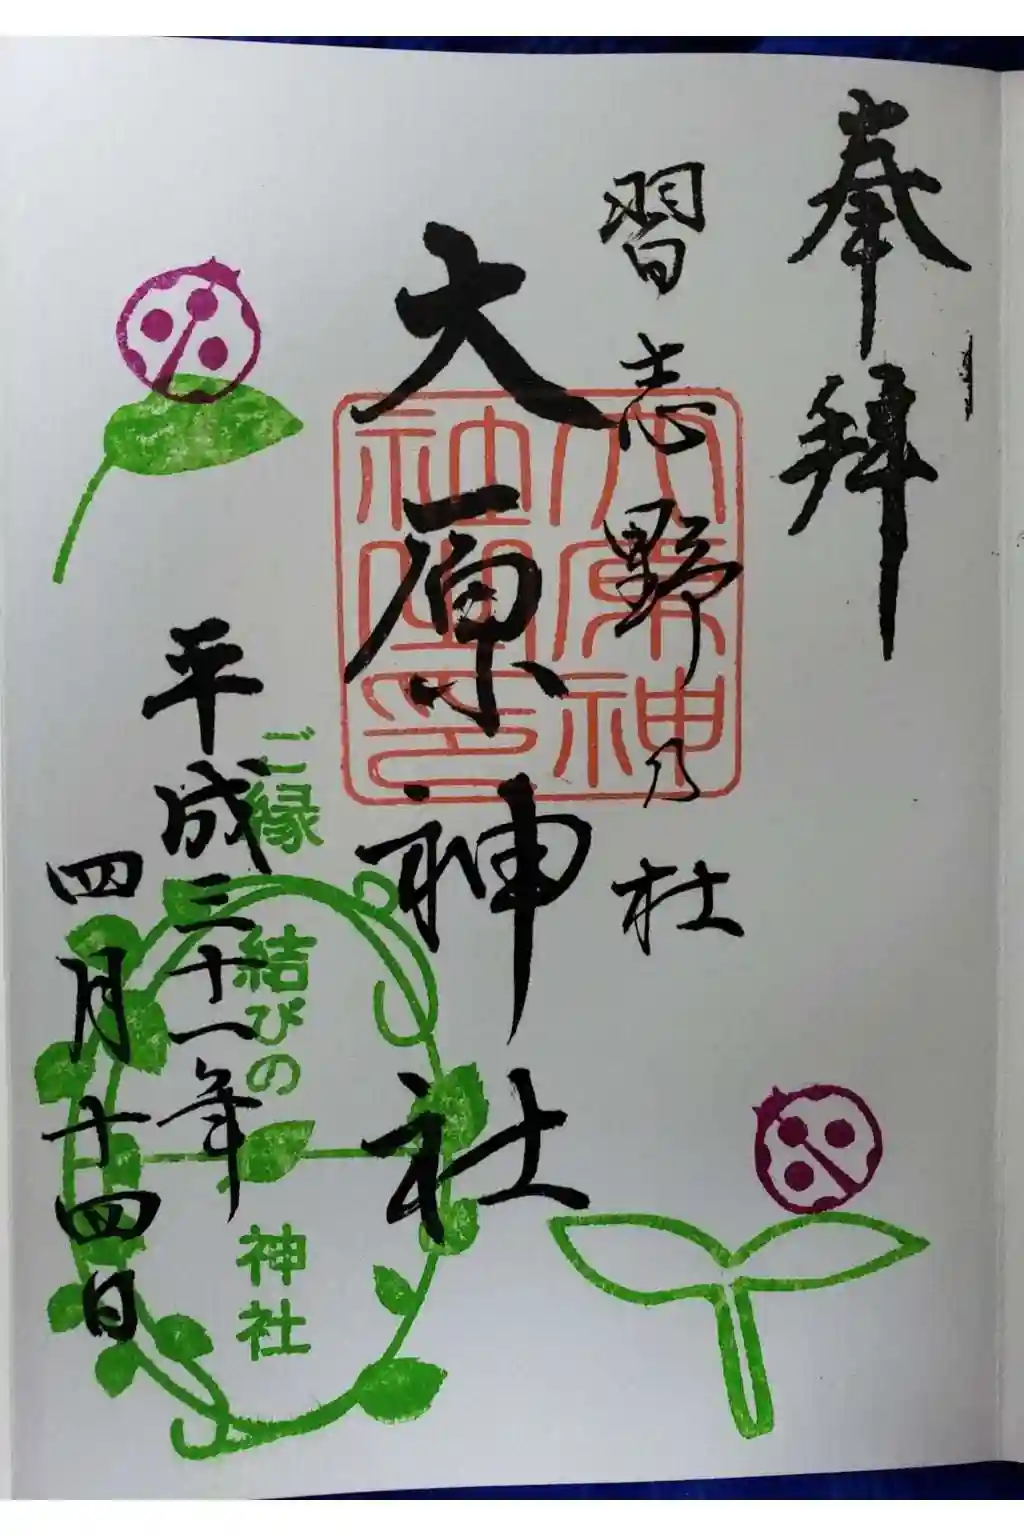 奉拝
習志野乃杜
大原神社
大原神
社之印
平成三十一年
四月十四日
ご縁結びの神社